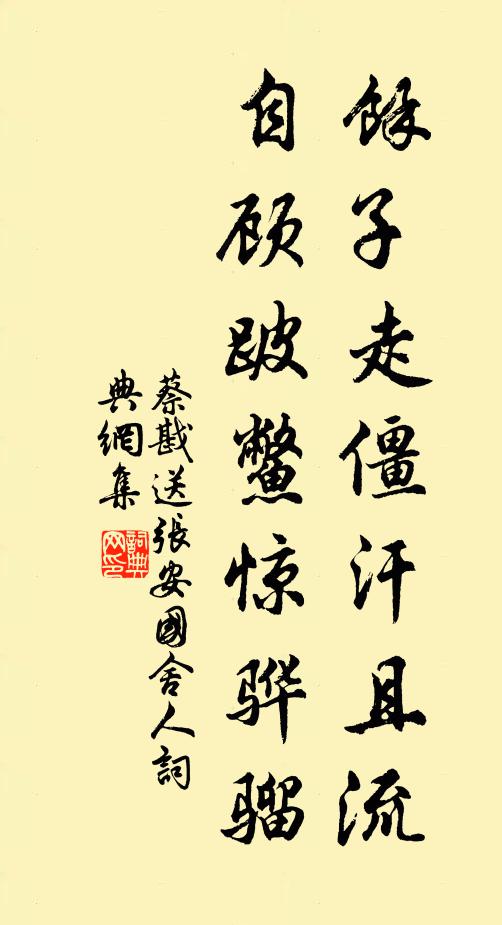 餘子走僵汗且流
自顾跛鳖惊骅骝
蔡戡送張安國舍人詞
典網集
詞典
网印